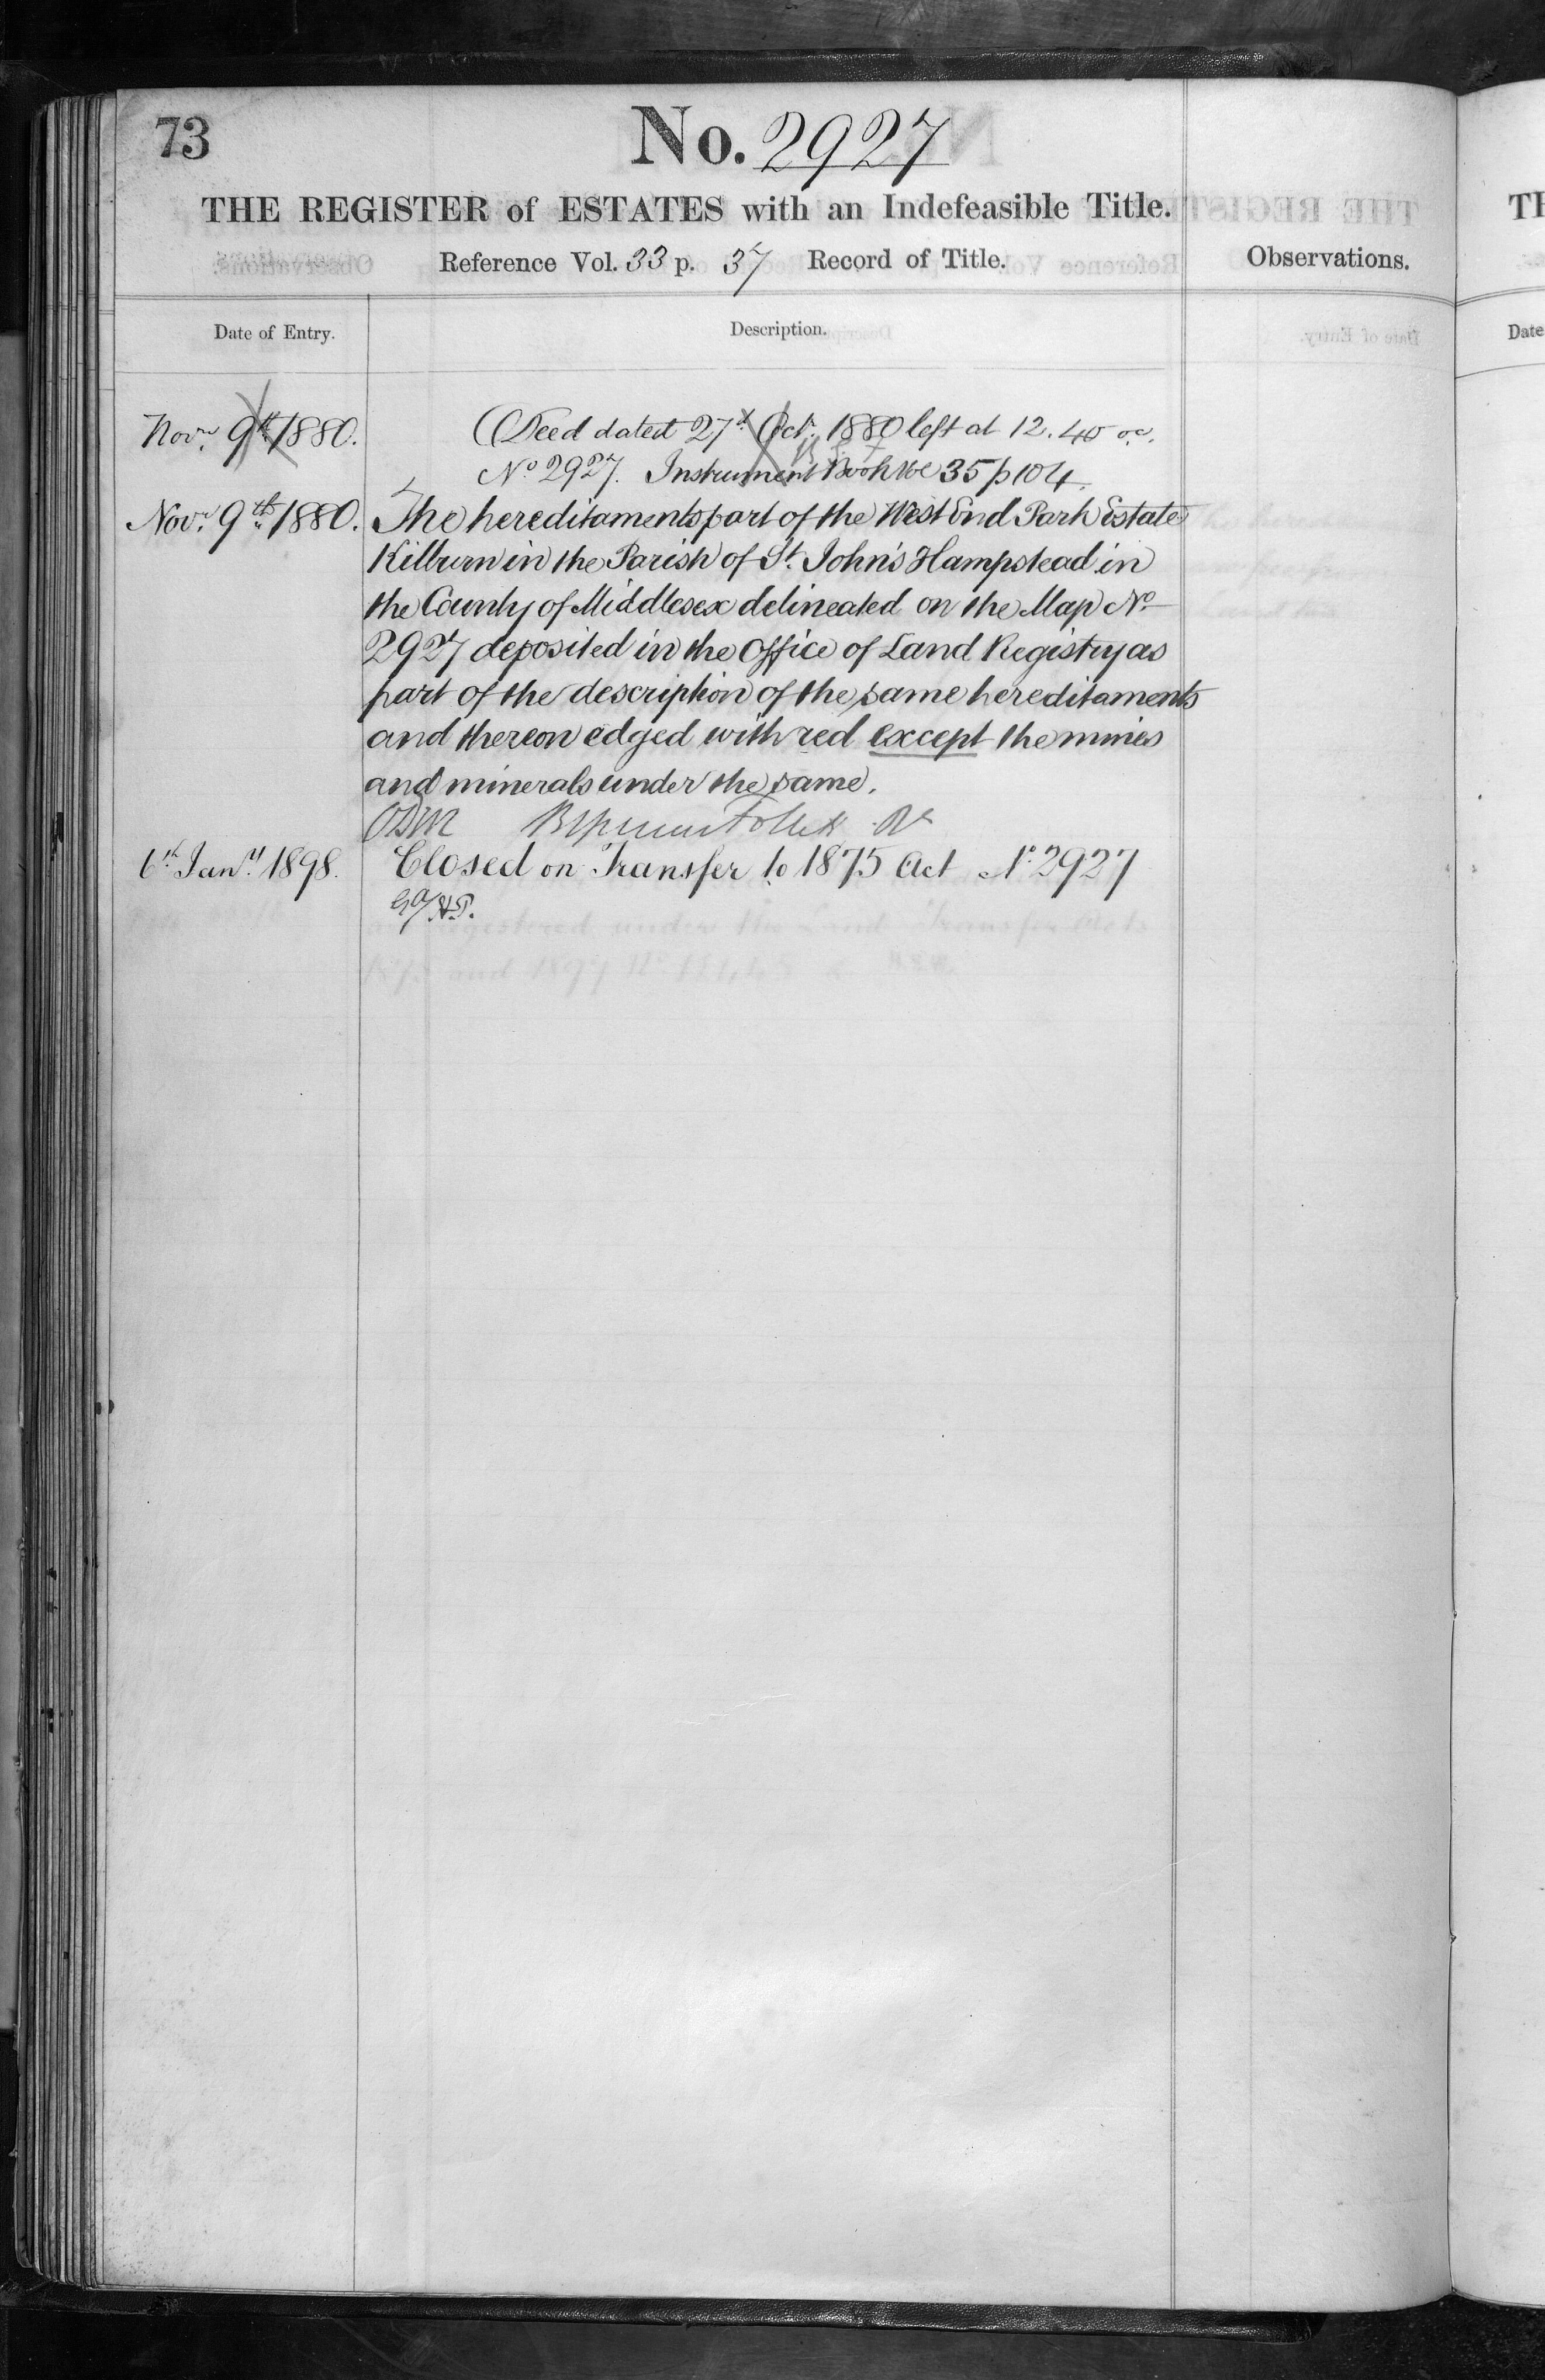 73
No. 2927
THE REGISTER of ESTATES with an Indefeasible Title.
Reference Vol. 33 p. 37 Record of Title.
Observations.
Date of Entry.
Description.
Novr. 9th 1880.
(Deed dated 27th Octr. 1880 left at 12.40 o.c.
No 2927. Instrument Book Vol 35 p 104.
Novr. 9th 1880.
The hereditaments part of the West End Park Estate
Kilburn in the Parish of St. John's Hampstead in
the County of Middlesex delineated on the Map No
2927 deposited in the Office of Land Registry as
part of the description of the same hereditaments
and thereon edged with red except the mines
and minerals under the same.
6th Jany. 1898.
Closed on Transfer to 1875 Act No. 2927
TH
Date